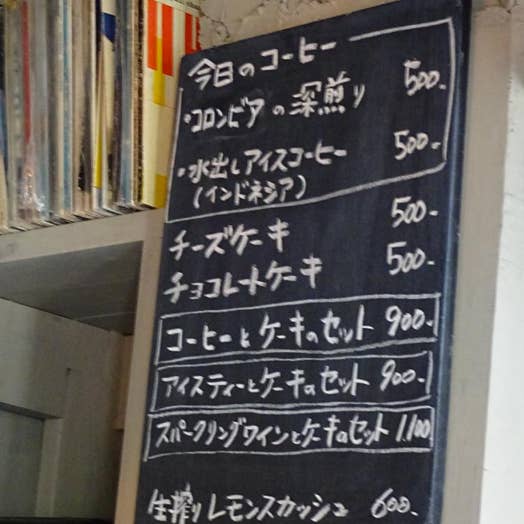 今日のコーヒー
・コロンビアの深煎り 500.
・水出しアイスコーヒー 500.
(インドネシア)
チーズケーキ 500-
チョコレートケーキ 500-
コーヒーとケーキのセット 900-
アイスティーとケーキのセット 900-
スパークリングワインとケーキのセット 1,100
生搾りレモンスカッシュ 600-